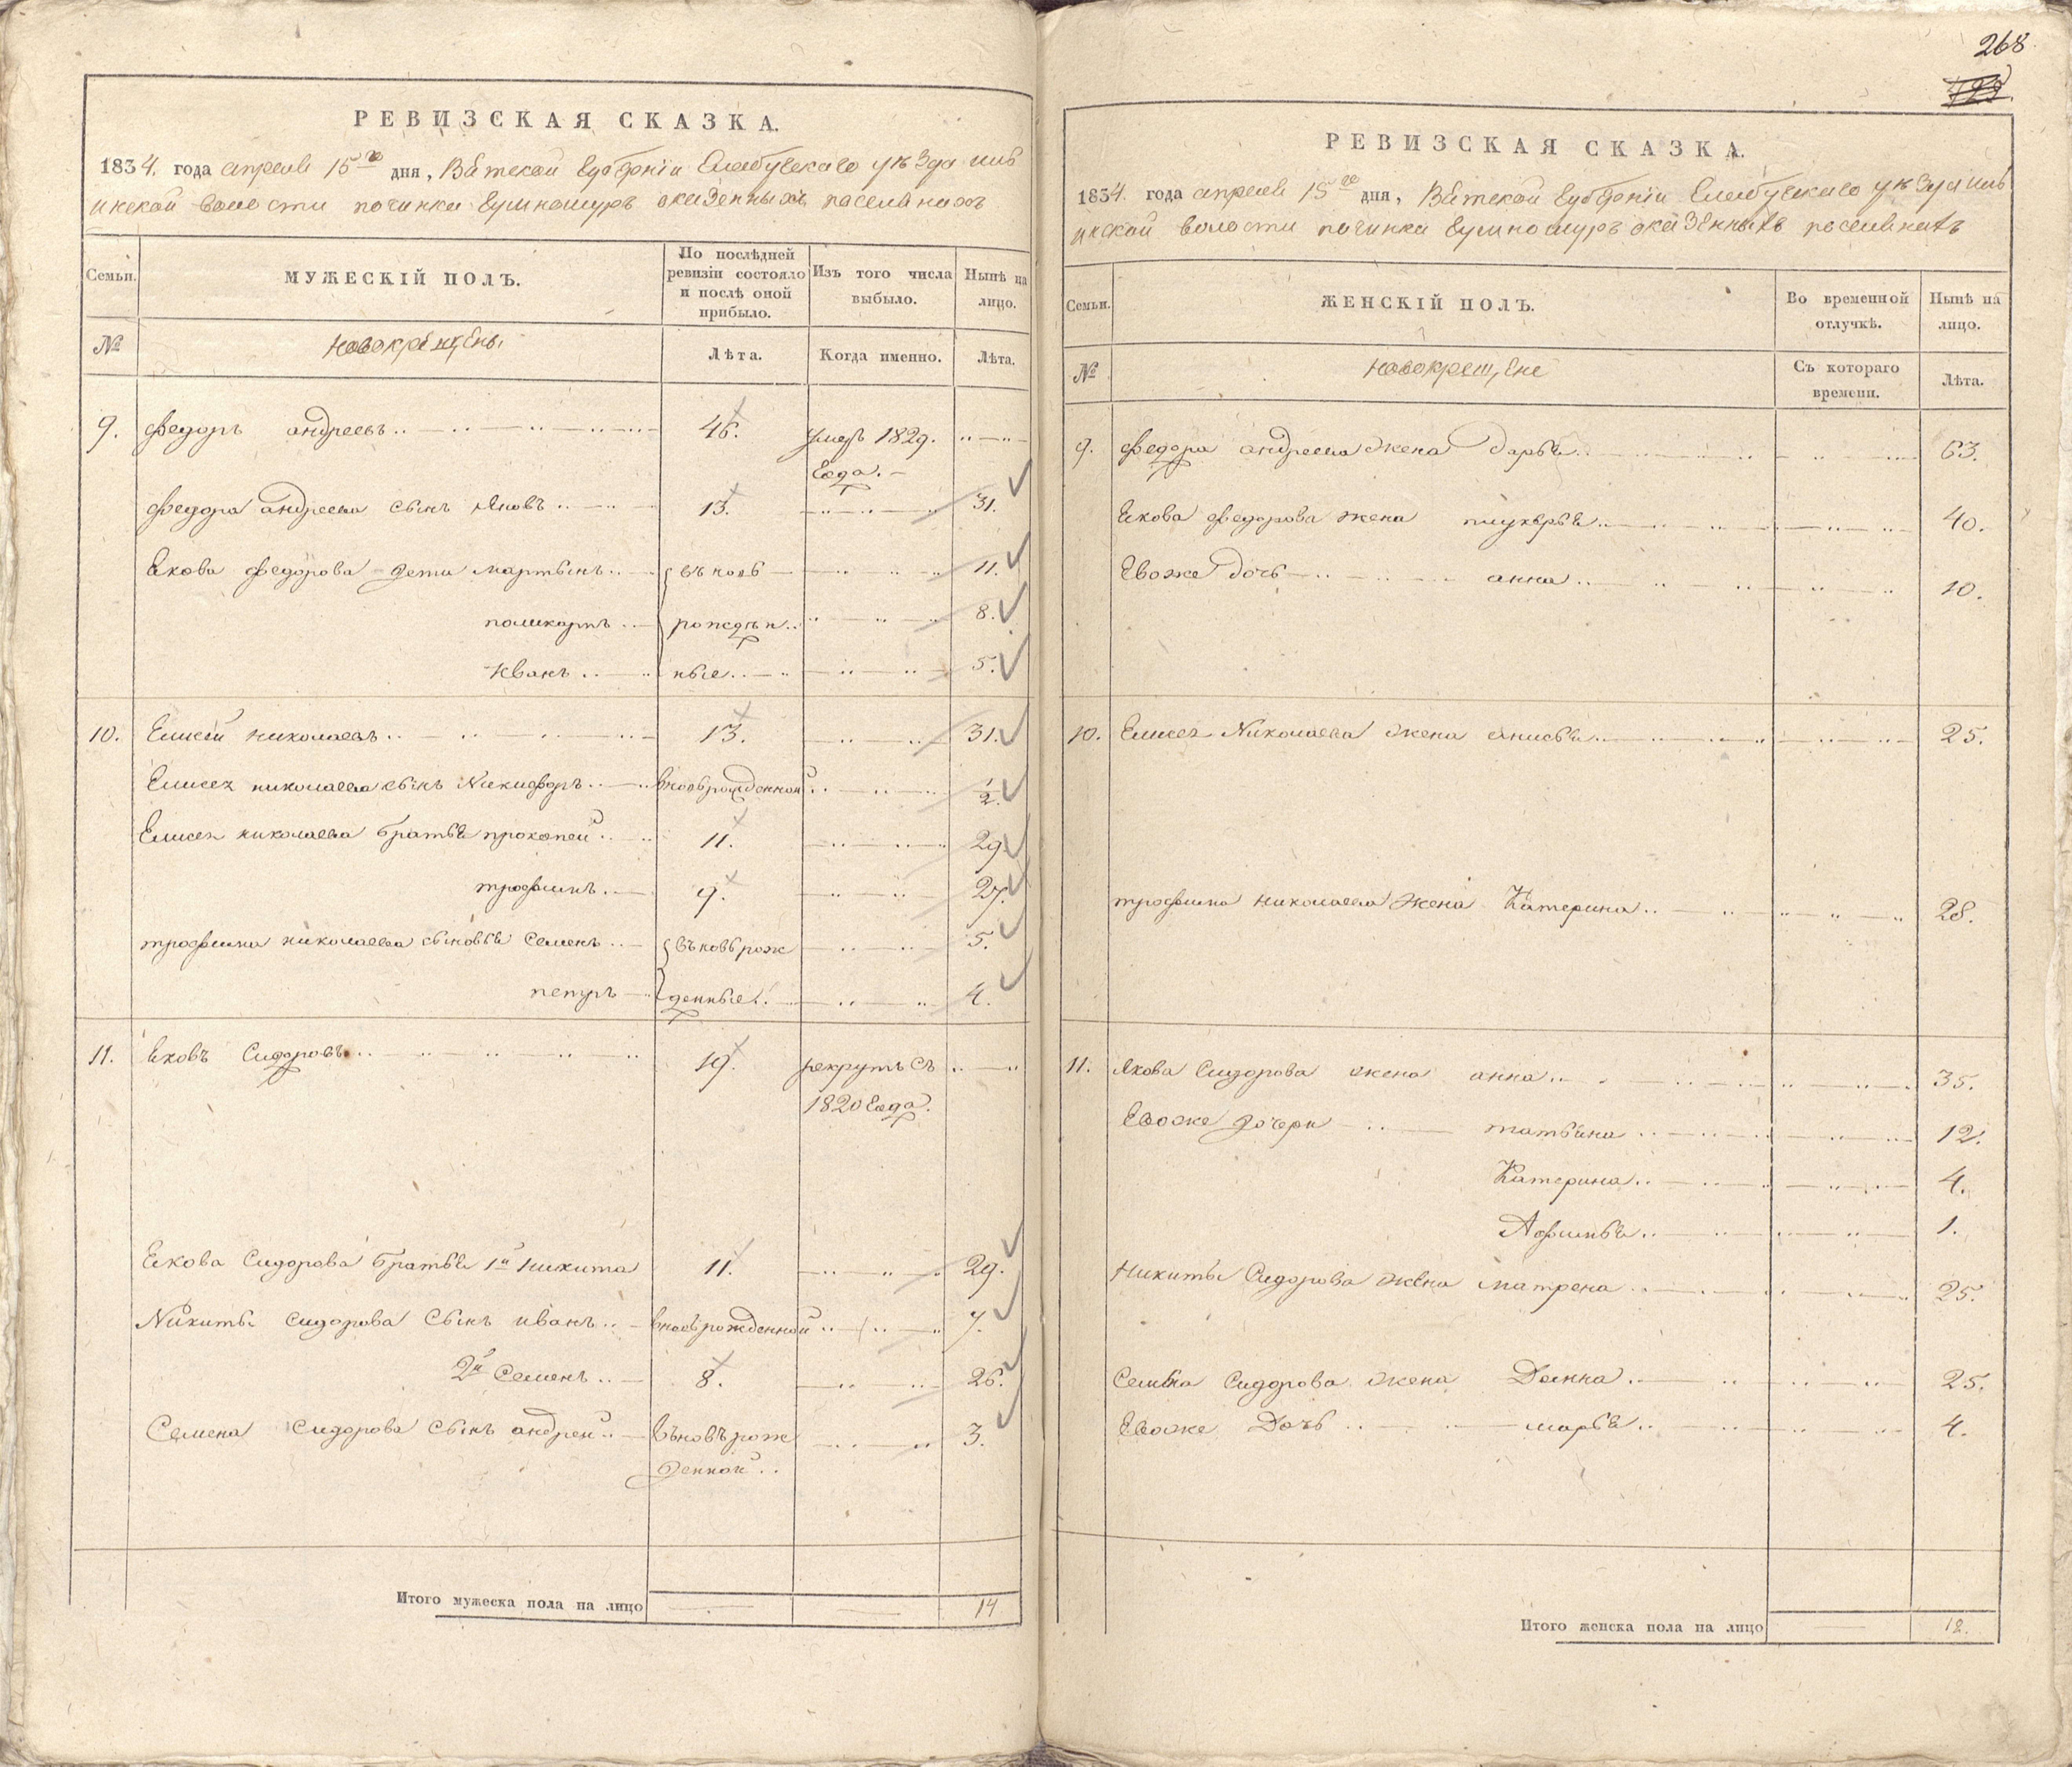 РЕВИЗСКАЯ СКАЗКА.
1834. года апреля 15го дня, Вятской губернiи Елабугскаго уѣзда илв
инской волости починка Гумношуръ оказенныхъ поселянахъ
Семьи.
МУЖЕСКIЙ ПОЛЪ.
По послѣдней ревизiи состояло и послѣ оной прибыло.
Изъ того числа выбыло.
Нынѣ на лицо.
№
новокрещены
Лѣта.
Когда именно.
Лѣта.
9. федоръ андреевъ 46. умеръ 1829.
года.
федора андреева сынъ Яковъ 13. 31.
Якова федорова дети мартынъ вновь 11.
поликарпъ рожден 8.
иванъ ные 5.
10. Елисей николаевъ 13. 31.
Елисея николаева сынъ Никифоръ вновьрожденной 1/2
Елисея николаева братья прокопеи 11. 29
трофимъ 9. 27.
трофима николаева сыновья Семенъ вьновьрож 5.
петръ денные 4.
11. Яковъ Сидоровъ 19. рекрутъ съ
1820 года.
Якова Сидорова братья 1й никита 11. 29.
Никиты сидорова сынъ иванъ вновьрожденной 7.
2й Семенъ 8. 26.
Семена сидорова сынъ андреи вьновьрож 3.
денной
Итого мужеска пола на лицо 14
268
РЕВИЗСКАЯ СКАЗКА.
1834. года апреля 15го дня, Вятской губернiи Елабугскаго уѣзда илв
инской волости починка Гумношуръ оказенныхъ поселянахъ
Семьи.
ЖЕНСКIЙ ПОЛЪ.
Во временной отлучкѣ.
Нынѣ на лицо.
№
новокрещене
Съ котораго времени.
Лѣта.
9. федора андреева жена дарья 63.
Якова федорова жена 40.
Евоже дочь анна 10.
10. Елисея Николаева жена анисья 25.
трофима николаева жена Катерина 28.
11. Якова Сидорова жена анна 35.
Евоже дочери татьяна 12.
Катерина 4.
Афимья 1.
Никиты Сидорова жена матрена 25.
Семена Сидорова жена Домна 25.
Евоже Дочь марья 4.
Итого женска пола на лицо 12.